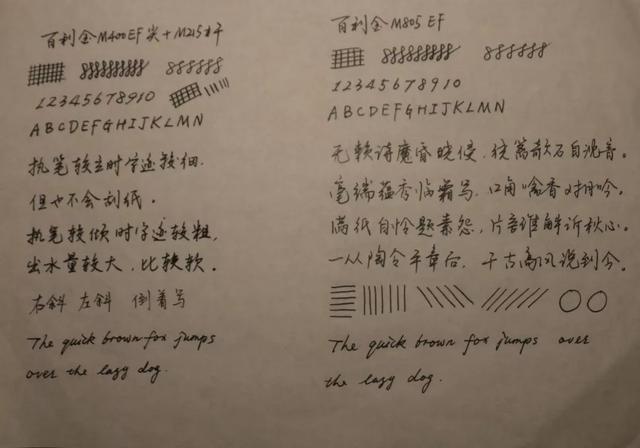 百利金M400EF尖+M215杆
8888888888 888888
12345678910
ABCDEFGHIJKLMN
执笔较立时字迹较细.
但也不会刮纸。
执笔较倾时字迹较粗,
出水量较大,比较软。
右斜 左斜 倒着写
The quick brown fox jumps
over the lazy dog.
百利金M805 EF
8888888888 888888
12345678910
ABCDEFGHIJKLMN
无赖诗魔昏晓侵.绕篱欹石自沉音。
毫端蕴秀临霜写.口角噙香对月吟。
满纸自怜题素怨,片言谁解诉秋心。
一从陶令平章后,千古高风说到今。
The quick brown fox jumps over
the lazy dog.